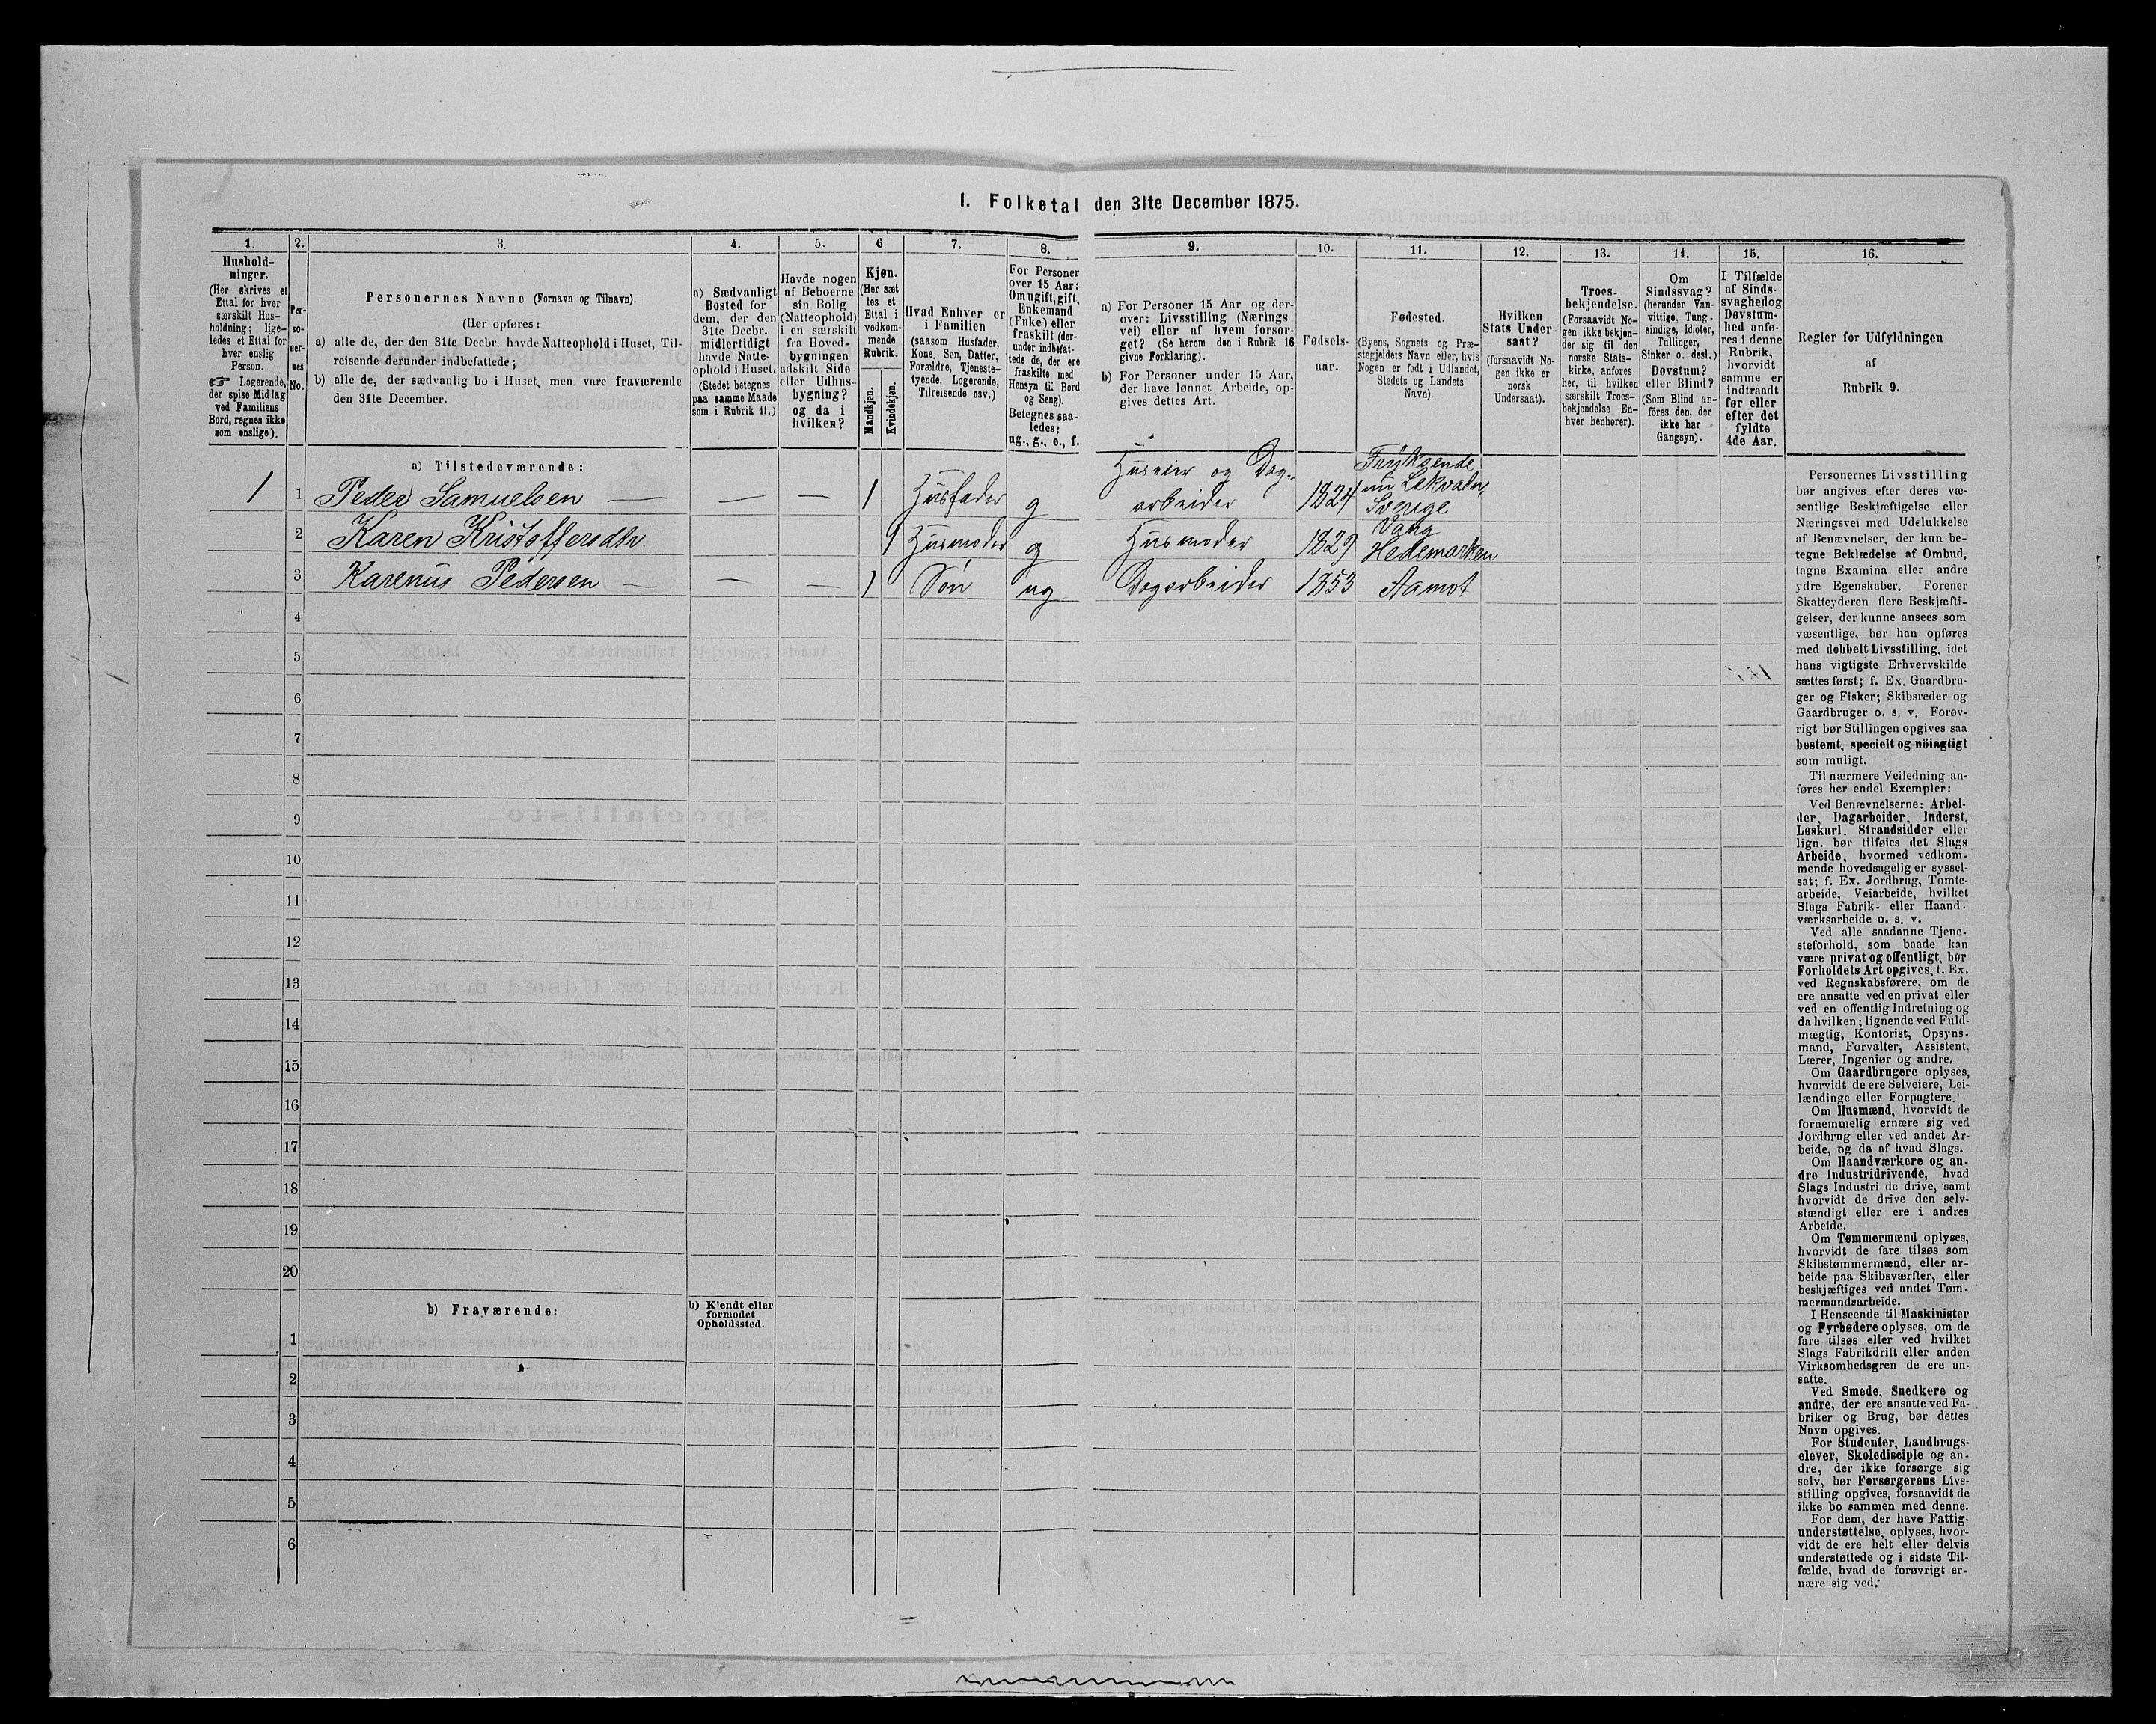 1. Folketal den 31te December 1875.
1.
2.
3.
4.
5.
6.
7.
8.
9.
10.
11.
12.
13.
14.
15.
16.
Hushold-
ninger.
(Her skrives et
Ettal for hver
særskilt Hus-
holdning; lige-
ledes et Ettal for
hver enslig
Person.
☞ Logerende,
der spise Middag
ved Familiens
Bord, regnes ikke
som enslige).
Per-
so-
ner-
nes
No.
Personernes Navne (Fornavn og Tilnavn).
(Her opføres:
a) alle de, der den 31te Decbr. havde Natteophold i Huset, Til-
reisende derunder indbefattede;
b) alle de, der sædvanlig bo i Huset, men vare fraværende
den 31te December.
a) Sædvanligt
Bosted for
dem, der den
31te Decbr.
midlertidigt
havde Natte-
ophold i Huset.
(Stedet betegnes
paa samme Maade
som i Rubrik 11.)
Havde nogen
af Beboerne
sin Bolig
(Natteophold)
i en særskilt
fra Hoved-
bygningen
adskilt Side-
eller Udhus-
bygning?
og da i
hvilken?
Kjøn.
(Her sæt
tes et
Ettal i
vedkom-
mende
Rubrik.
Mandkjøn.
Kvindekjøn.
Hvad Enhver er
i Familien
(saasom Husfader,
Kone, Søn, Datter,
Forældre, Tjeneste-
tyende, Logerende,
Tilreisende osv.)
For Personer
over 15 Aar:
Om ugift, gift,
Enkemand
(Enke) eller
fraskilt (der-
under indbefat-
tede de, der ere
fraskilte med
Hensyn til Bord
og Seng).
Betegnes saa-
ledes:
ug., g., e., f.
a) For Personer 15 Aar og der-
over: Livsstilling (Nærings
vei) eller af hvem forsør-
get? (Se herom den i Rubrik 16
givne Forklaring).
b) For Personer under 15 Aar,
der have lønnet Arbeide, op-
gives dettes Art.
Fødsels-
aar.
Fødested.
(Byens, Sognets og Præ-
stegjeldets Navn eller, hvis
Nogen er født i Udlandet,
Stedets og Landets
Navn).
Hvilken
Stats Under-
saat?
(forsaavidt No-
gen ikke er
norsk
Undersaat).
Troes-
bekjendelse.
(Forsaavidt No-
gen ikke bekjen-
der sig til den
norske Stats-
kirke, anføres
her, til hvilken
særskilt Troes-
bekjendelse En-
hver henhører).
Om
Sindssvag?
(herunder Van-
vittige, Tung-
sindige, Idioter,
Tullinger,
Sinker o. desl.)
Døvstum?
eller Blind?
(Som Blind an-
föres den, der
ikke har
Gangsyn).
I Tilfælde
af Sinds-
svaghedog
Døvstum-
hed anfø-
res i denne
Rubrik,
hvorvidt
samme er
indtraadt
før eller
efter det
fyldte
4de Aar.
Regler for Udfyldningen
af
Rubrik 9.
a) Tilstedeværende:
1 1 Peder Samuelsen — — — 1 Husfader g Huseier og Dag-
arbeider 1824 Fryksende
nu Lekvaln,
Sverige
2 Karen Kristoffersdtr. 1 Husmoder g Husmoder 1829 Vang
Hedemarken
3 Karenus Pedersen — — — 1 Søn ug Dagarbeider 1853 Aamot
4
5
6
7
8
9
10
11
12
13
14
15
16
17
18
19
20
b) Fraværende:
b) Kjendt eller
formodet
Opholdssted.
1
2
3
4
5
6
Personernes Livsstilling
bør angives efter deres væ-
sentlige Beskjæftigelse eller
Næringsvei med Udelukkelse
af Benævnelser, der kun be-
tegne Beklædelse af Ombud,
tagne Examina eller andre
ydre Egenskaber. Forener
Skatteyderen flere Beskjæfti-
gelser, der kunne ansees som
væsentlige, bør han opføres
med dobbelt Livsstilling, idet
hans vigtigste Erhvervskilde
sættes først; f. Ex. Gaardbru-
ger og Fisker; Skibsreder og
Gaardbruger o. s. v. Forøv-
rigt bør Stillingen opgives saa
bestemt, specielt og nöiagtigt
som muligt.
Til nærmere Veiledning an-
føres her endel Exempler:
Ved Benævnelserne: Arbei-
der, Dagarbeider, Inderst,
Løskarl, Strandsidder eller
lign. bør tilføies det Slags
Arbeide, hvormed vedkom-
mende hovedsagelig er syssel-
sat; f. Ex. Jordbrug, Tomte-
arbeide, Veiarbeide, hvilket
Slags Fabrik- eller Haand-
værksarbeide o. s. v.
Ved alle saadanne Tjene-
steforhold, som baade kan
være privat og offentligt, bør
Forholdets Art opgives, t. Ex.
ved Regnskabsførere, om de
ere ansatte ved en privat eller
ved en offentlig Indretning og
da hvilken; lignende ved Fuld-
mægtig, Kontorist, Opsyns-
mand, Forvalter, Assistent,
Lærer, Ingeniør og andre.
Om Gaardbrugere oplyses,
hvorvidt de ere Selveiere, Lei-
lændinge eller Forpagtere.
Om Husmænd, hvorvidt de
fornemmelig ernære sig ved
Jordbrug eller ved andet Ar-
beide, og da af hvad Slags.
Om Haandværkere og an-
dre Industridrivende, hvad
Slags Industri de drive, samt
hvorvidt de drive den selv-
stændigt eller ere i andres
Arbeide.
Om Tømmermænd oplyses,
hvorvidt de fare tilsøs som
Skibstømmermænd, eller ar-
beide paa Skibsværfter, eller
beskjæftiges ved andet Tøm-
mermandsarbeide.
I Henseende til Maskinister
og Fyrbødere oplyses, om de
fare tilsøs eller ved hvilket
Slags Fabrikdrift eller anden
Virksomhedsgren de ere an-
satte.
Ved Smede, Snedkere og
andre, der ere ansatte ved Fa-
briker og Brug, bør dettes
Navn opgives.
For Studenter, Landbrugs-
elever, Skoledisciple og an-
dre, der ikke forsørge sig
selv, bør Forsørgerens Livs-
stilling opgives, forsaavidt de
ikke bo sammen med denne.
For dem, der have Fattig-
understøttelse, oplyses, hvor-
vidt de ere helt eller delvis
understøttede og i sidste Til-
fælde, hvad de forøvrigt er-
nære sig ved.